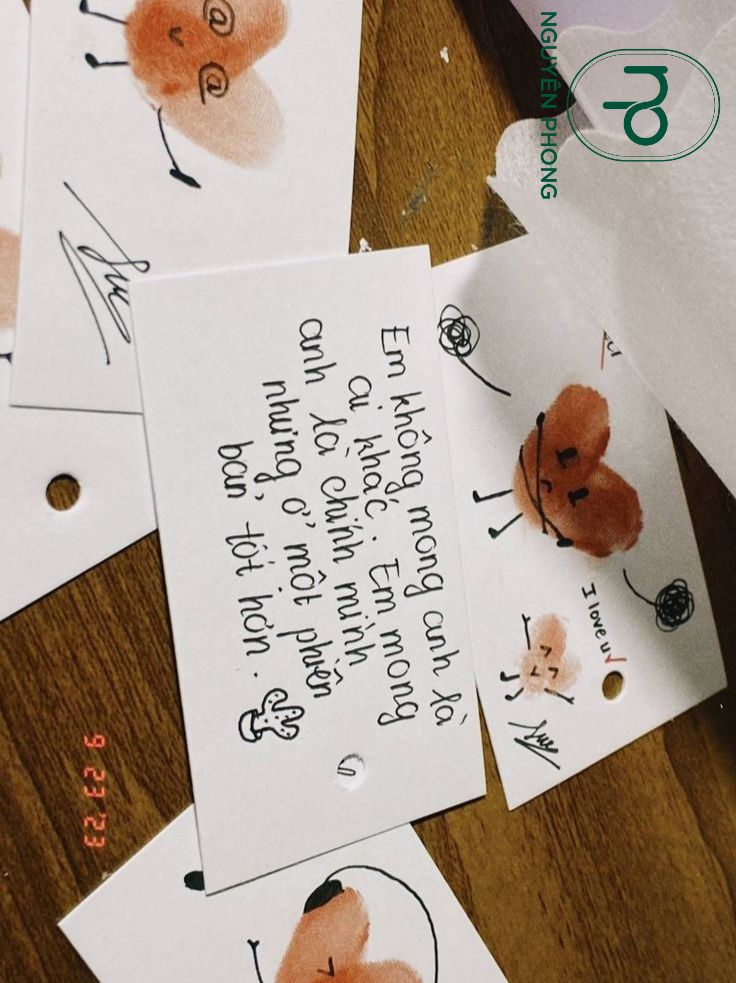 NGUYÊN PHONG
Em không mong anh là
ai khác. Em mong
anh là chính mình
nhưng ở một phiên
bản tốt hơn.
I love u
9 23 23